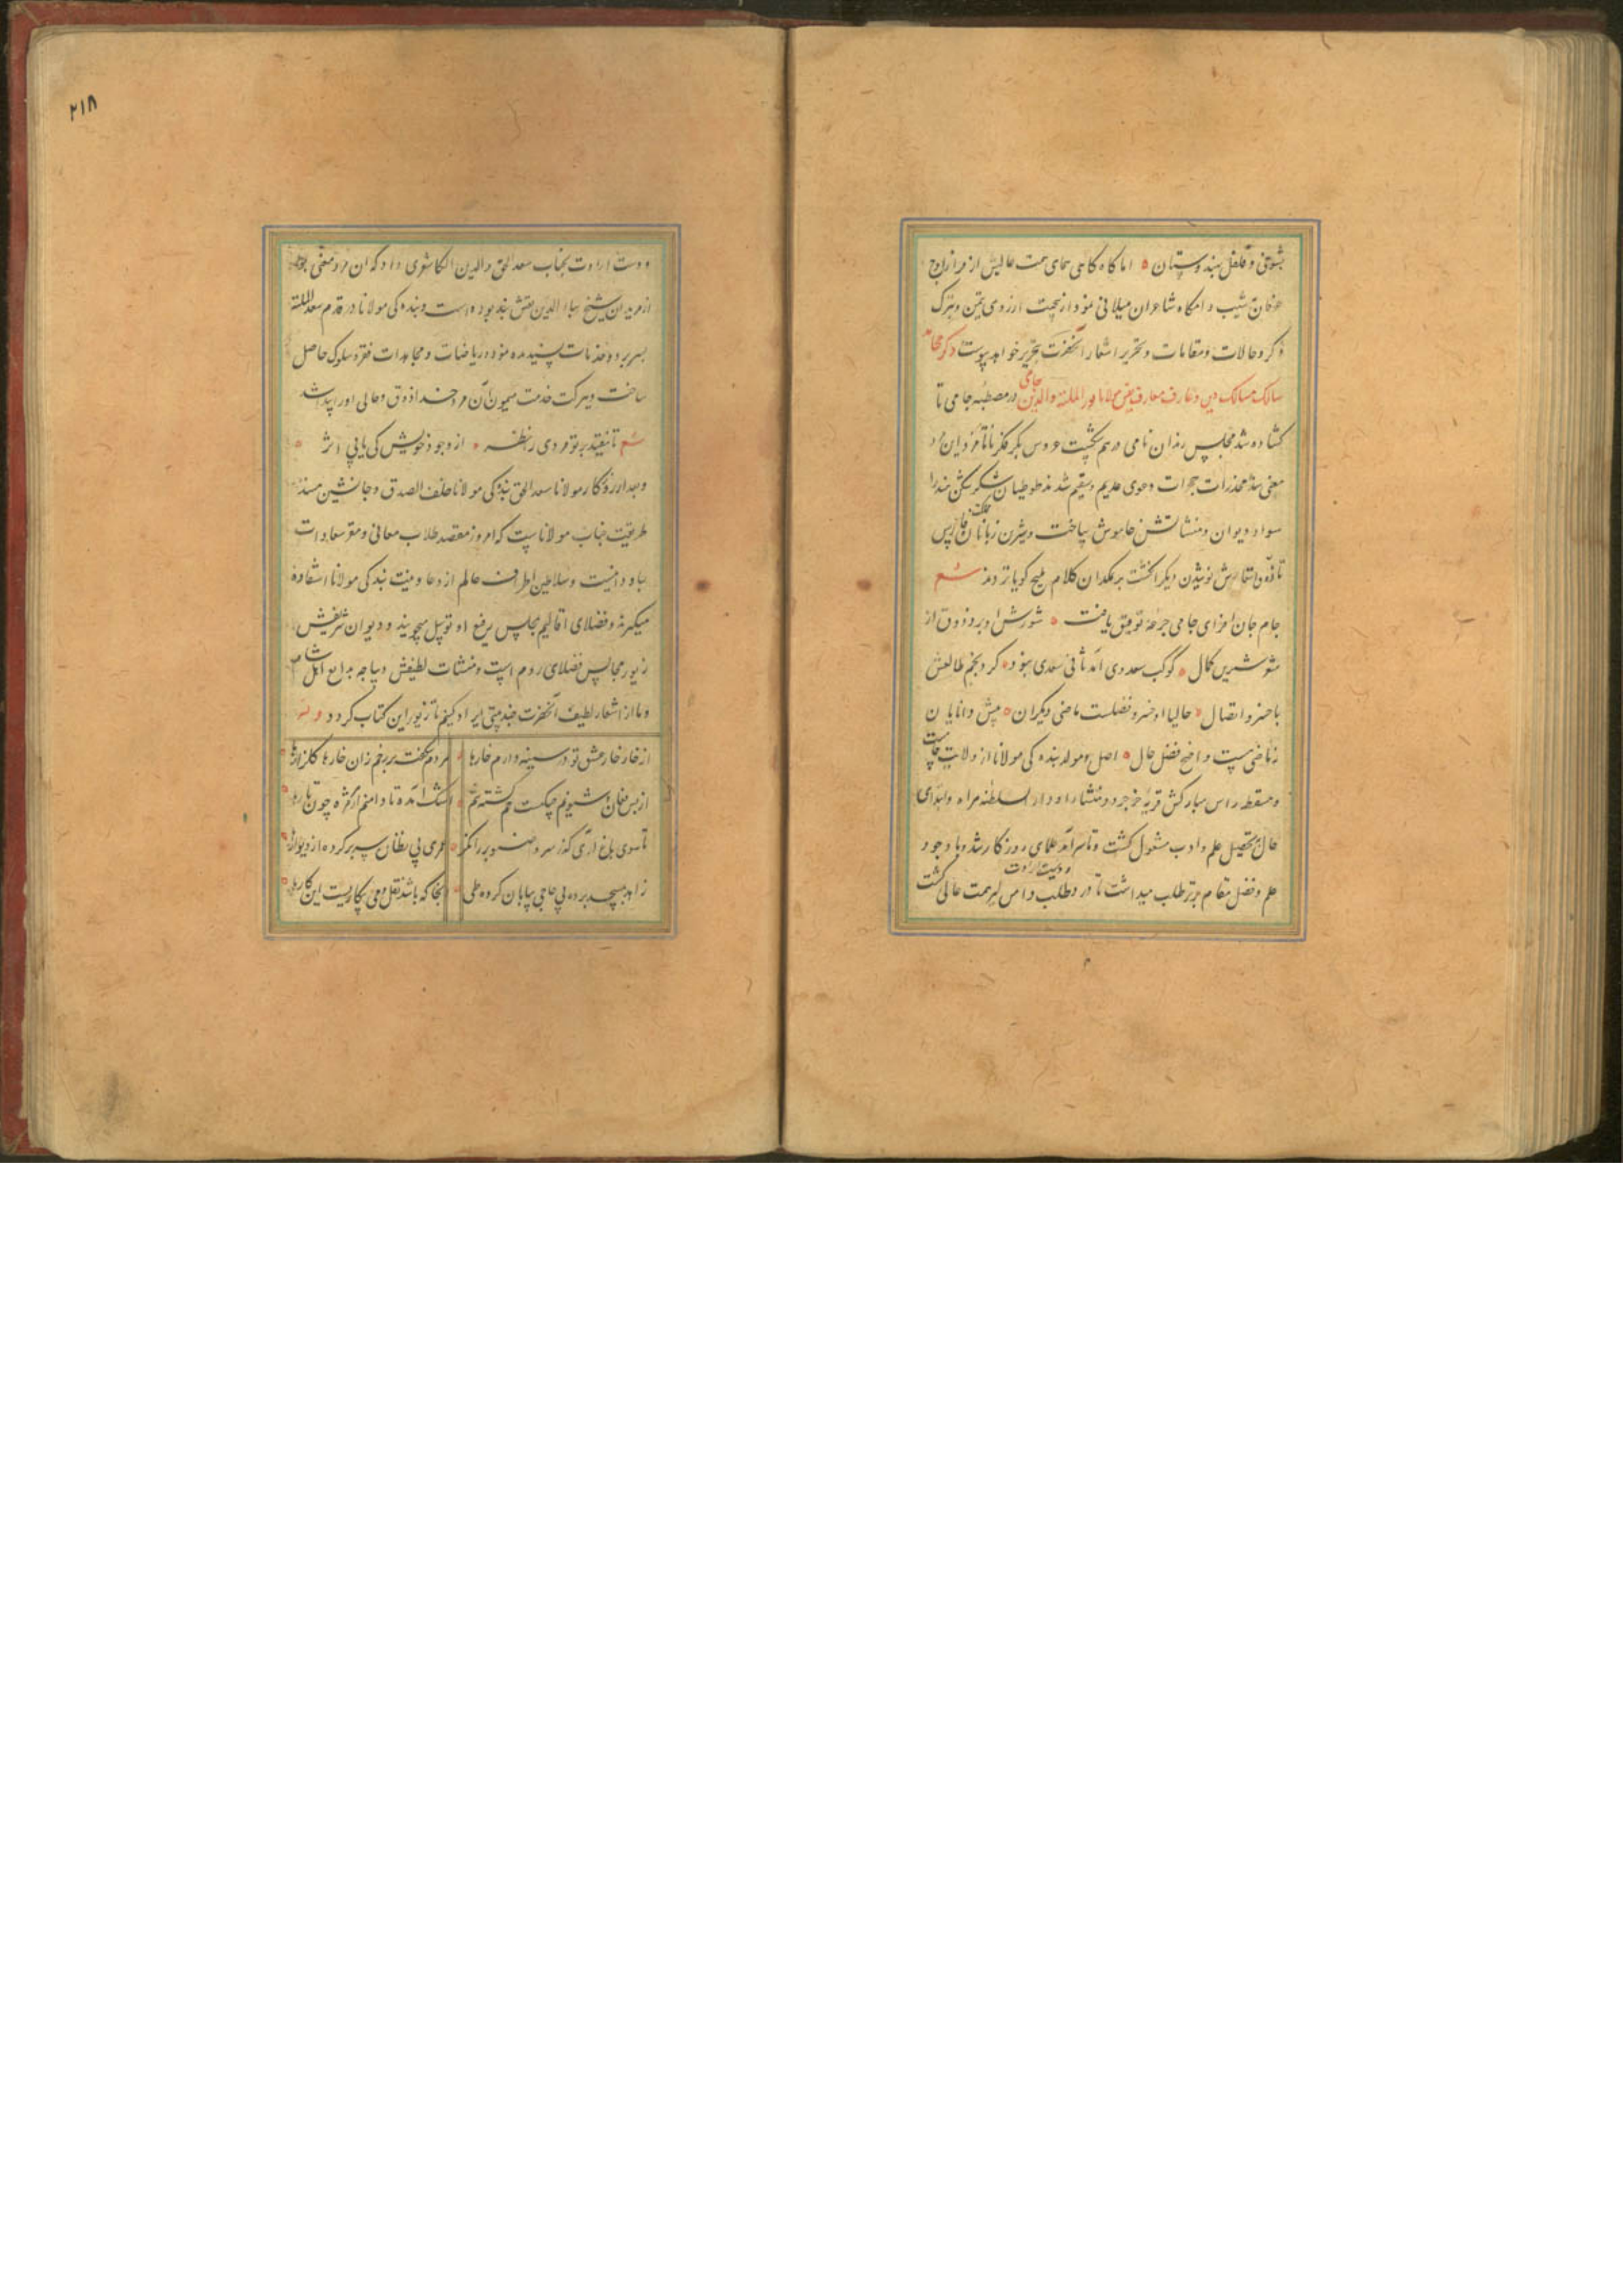 بشوقی و فلفل بهندوستان اما گاه گاهی همای همت عالیش از فراز اوج
عرفان بنشیب دامگاه شاعران میلانی نمود ازین جهت از روی تیمن و تبرک
ذکر و حالات و مقامات و تحریر اشعار آنحضرت بتحریر خواهد پیوست ذکر
سالک مسالک دین و عارف معارف یقین مولانا نور الملة والدین جامی در مصطبه جامی تا
کشاده شد مجلس رندان نامی درهم شکست عروس بکر فکر تا نامزد این مرد
معنی شد مخدرات حجرات دعوی عدیم و سقیم شدند طوطیان شکرشکن هند را
سواد دیوان و منشاتش خاموش ساخت و شیرین زبانان ملک فارس
تا ذوق اشعارش نوشیدن دیگر انگشت بر نمکدان کلام ملیح گویان نزدند شعر
جام جان افزای جامی جرعه توفیق یافت شورش او برد ذوق از
شعر شیرین کمال کوکب سعدی آمد ثانی سعدی نبود کرد نجم طالعش
با خسرو اتصال حالیا او خسرو فضلست ماضی دیگران پیش دانایان
زماضی هست واضح فضل حال اصل و مولد بندگی مولانا از ولایت جامست
و مسقط راس مبارکش قریه خرجرد و منشا او دار السلطنه هراة و ابتدای
حال بتحصیل علم و ادب مشغول گشت و تا سرآمد علمای روزگار شد و با وجود
علم و فضل مقام برتر طلب میداشت تا درد طلب دامن گیر همت عالی گشت
و دست ارادت
۲۱۸
و دست ارادت بجناب سعد الحق والدین الکاشغری داد که آن مرد معنی بوده
از مریدان شیخ بهاء الدین نقش بند بوده است و بندگی مولانا در قدم سعد الملة
بسر برده و خدمات پسندیده نموده و ریاضات و مجاهدات فقر و سلوک حاصل
ساخت و ببرکت خدمت میمون آن مرد خدا ذوق و حالی او را پیدا شد
شعر تا نیفتد بر تو مردی را نظر از وجود خویش کی یابی اثر
و بعد از روزگار مولانا سعد الحق بندگی مولانا خلف الصدق و جانشین مسند
طریقت جناب مولاناست که امروز مقصد طلاب معانی و مقر سعادات
باو دانیست و سلاطین اطراف عالم از دعا و همت بندگی مولانا استفاده
میگیرند و فضلای اقالیم بمجلس رفیع او توسل میجویند و دیوان شریفش
زیور مجالس فضلای روم است و منشات لطیفش دیباجه بدایع اهل شام
و ما از اشعار لطیف آنحضرت چند بیتی ایراد کنیم تا زیور این کتاب گردد
از خار خار عشق تو در سینه دارم خارها هر دم شکفته بر رخم زان خارها گلزارها
از بس فغان و شیونم چنگیست خم گشته تنم اشک آمده تا دامنم از هر مژه چون تارها
تا سوی باغ آری گذر سرو و صنوبر را نگر عمری پی نظاره سر بر کرده از دیوارها
زاهد بمسجد برده پی حاجی بیابان کرده طی آنجا که باشد نقل و می بیکاریست این کارها